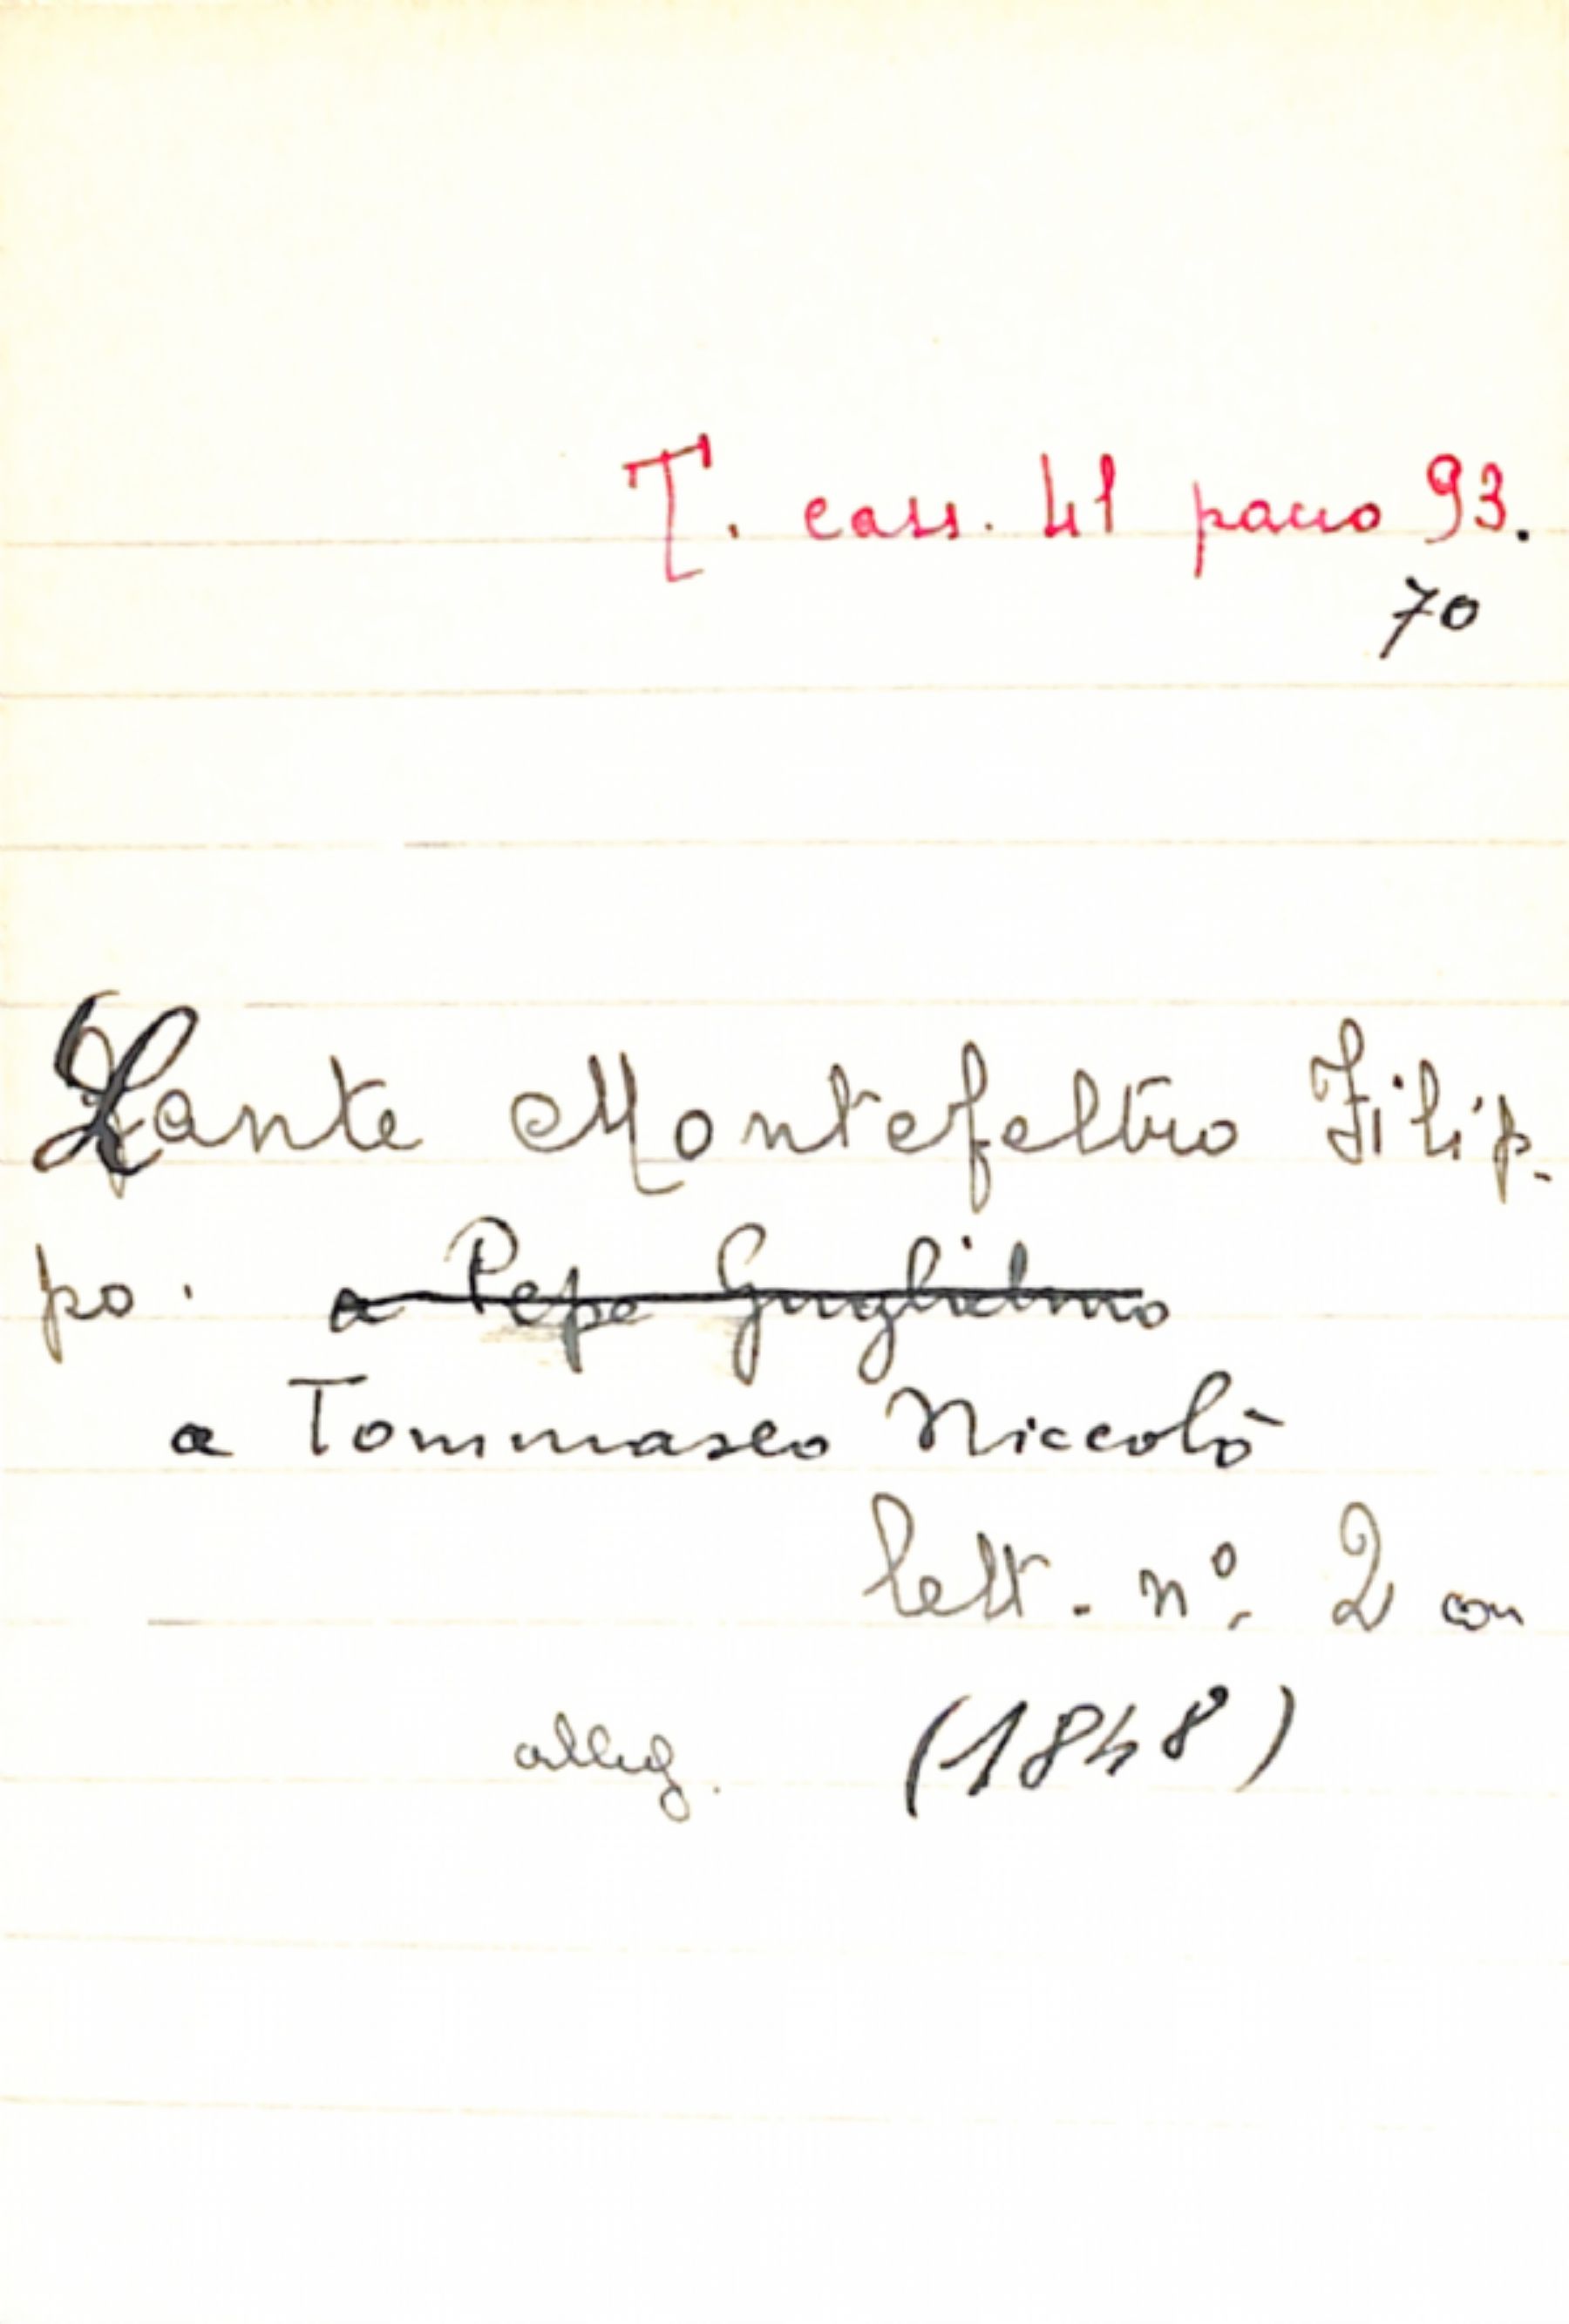 T. cass. 41 pacco 93.
70
Lante Montefeltro Filip-
po. a Pepe Guglielmo
a Tommaseo Niccolò
lett. nº. 2 con
alleg. (1848)